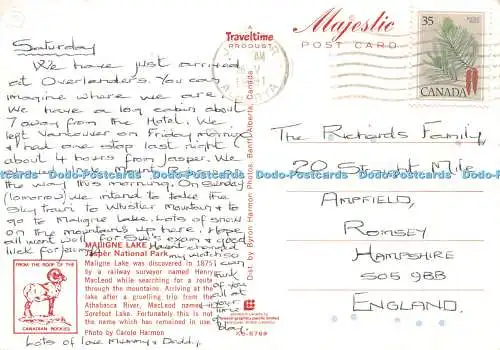 Saturday
We have just arrived
at Overlanders. You can
imagine where we are.
We have a log cabin about
7 away from the Hotel. We
left Vancouver on Friday morning
& had one stop last night
about 4 hours from Jasper. We
the way this morning. On Sunday
(tomorrow) we intend to take the
Sky Tram to Whistler Mountain & to
go to Maligne Lake. Lots of snow
on the mountains up here. Hope
all went well for Sue's exam & good
luck for
Think
of you
all at
your
time of
day.
Lots of love Mummy & Daddy.
MALIGNE LAKE
Jasper National Park
Maligne Lake was discovered in 1875
by a railway surveyor named Henry
MacLeod while searching for a route
through the mountains. Arriving at the
lake after a gruelling trip from the
Athabasca River, MacLeod named it
Sorefoot Lake. Fortunately this is not
the name which has remained in use.
Photo by Carole Harmon
FROM THE ROOF OF THE
CANADIAN ROCKIES
A
Traveltime
PRODUCT
Dist. by Byron Harmon Photos, Banff, Alberta, Canada
Majestic
POST CARD
35
CANADA
The Richards Family,
20 Straight Mile
AMPFIELD,
ROMSEY
HAMPSHIRE
SO5 9BB
ENGLAND.
Dodo-Postcards Dodo-Postcards Dodo-Postcards Dodo-Postcards